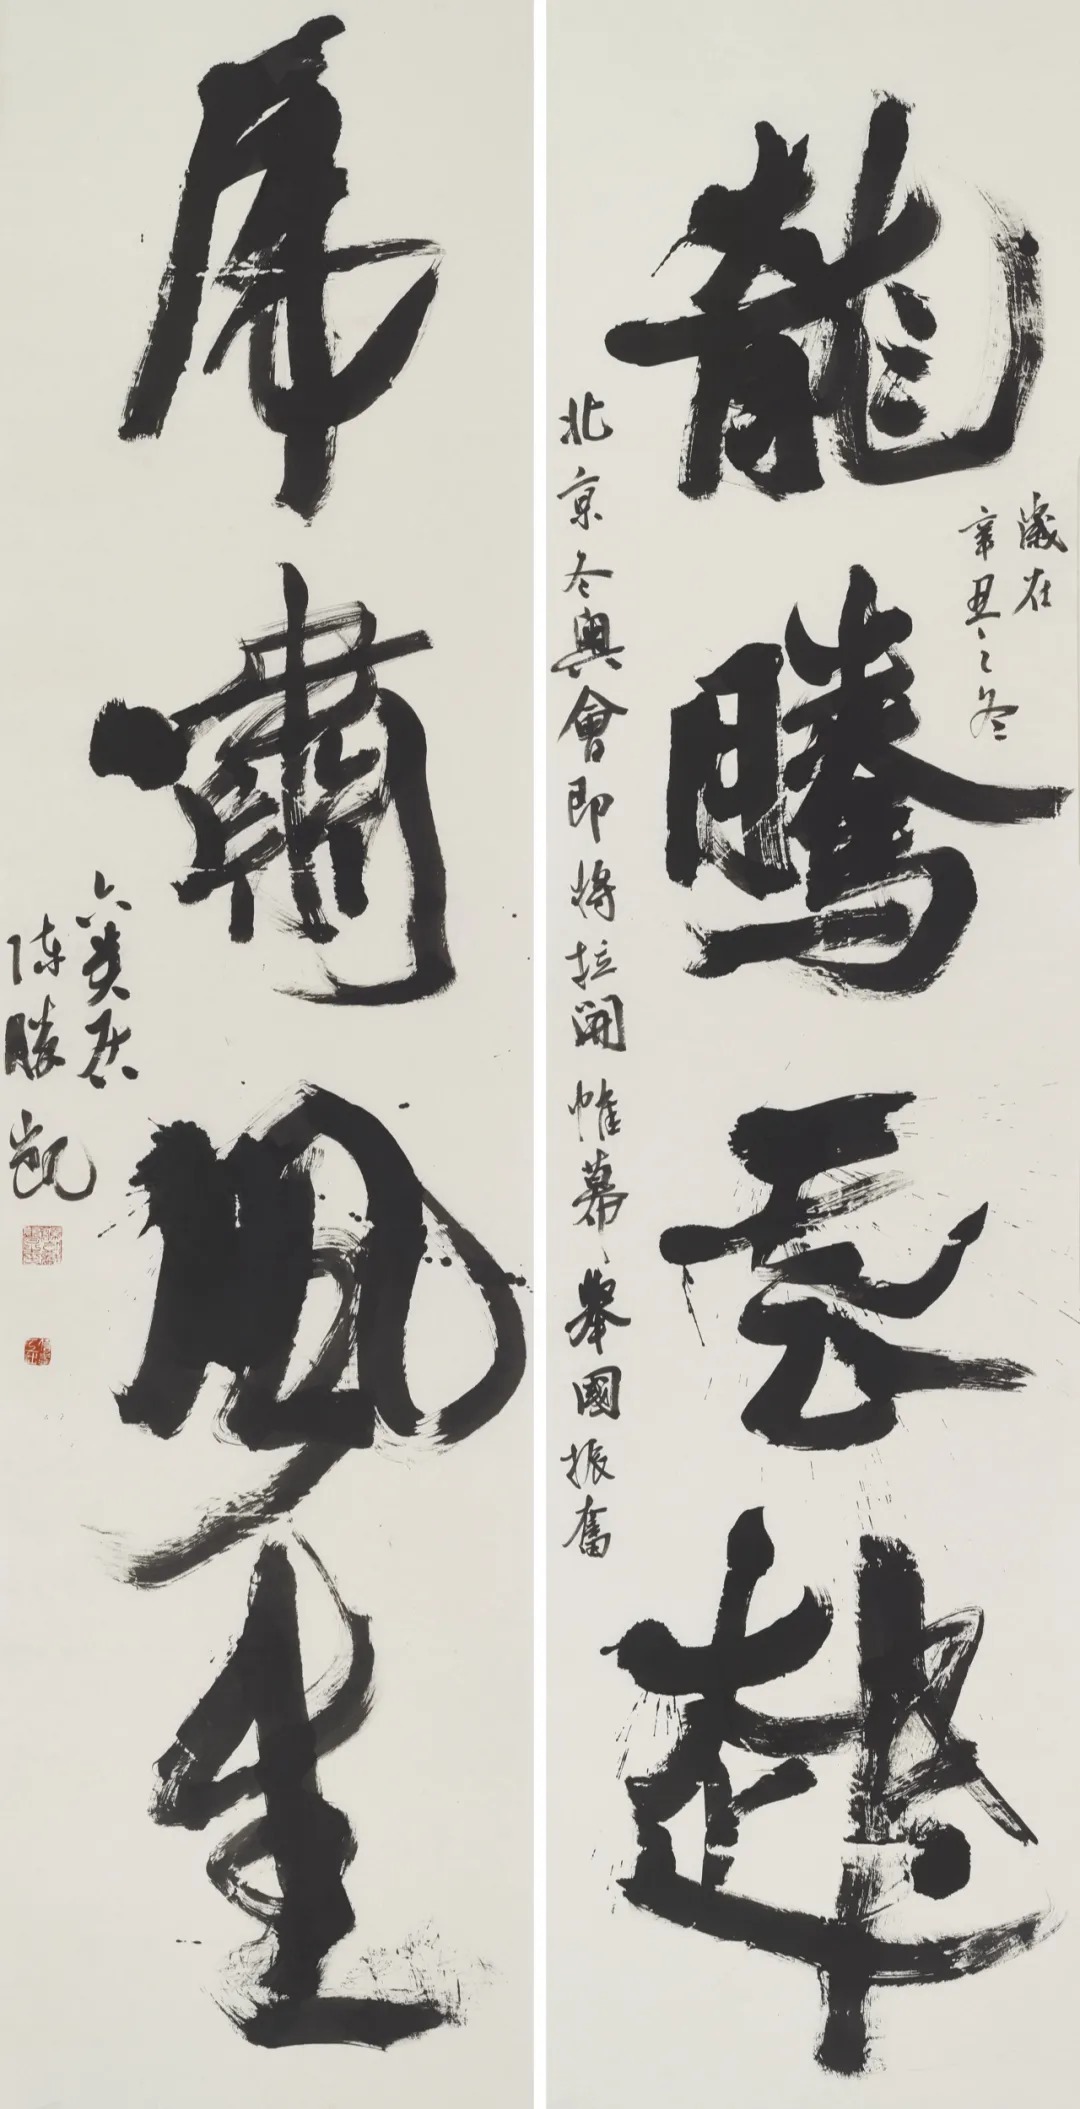 龍騰云
歲在
辛丑之冬
北京冬奧會即將拉開帷幕、舉國振奮
虎嘯風生
陳勝凱